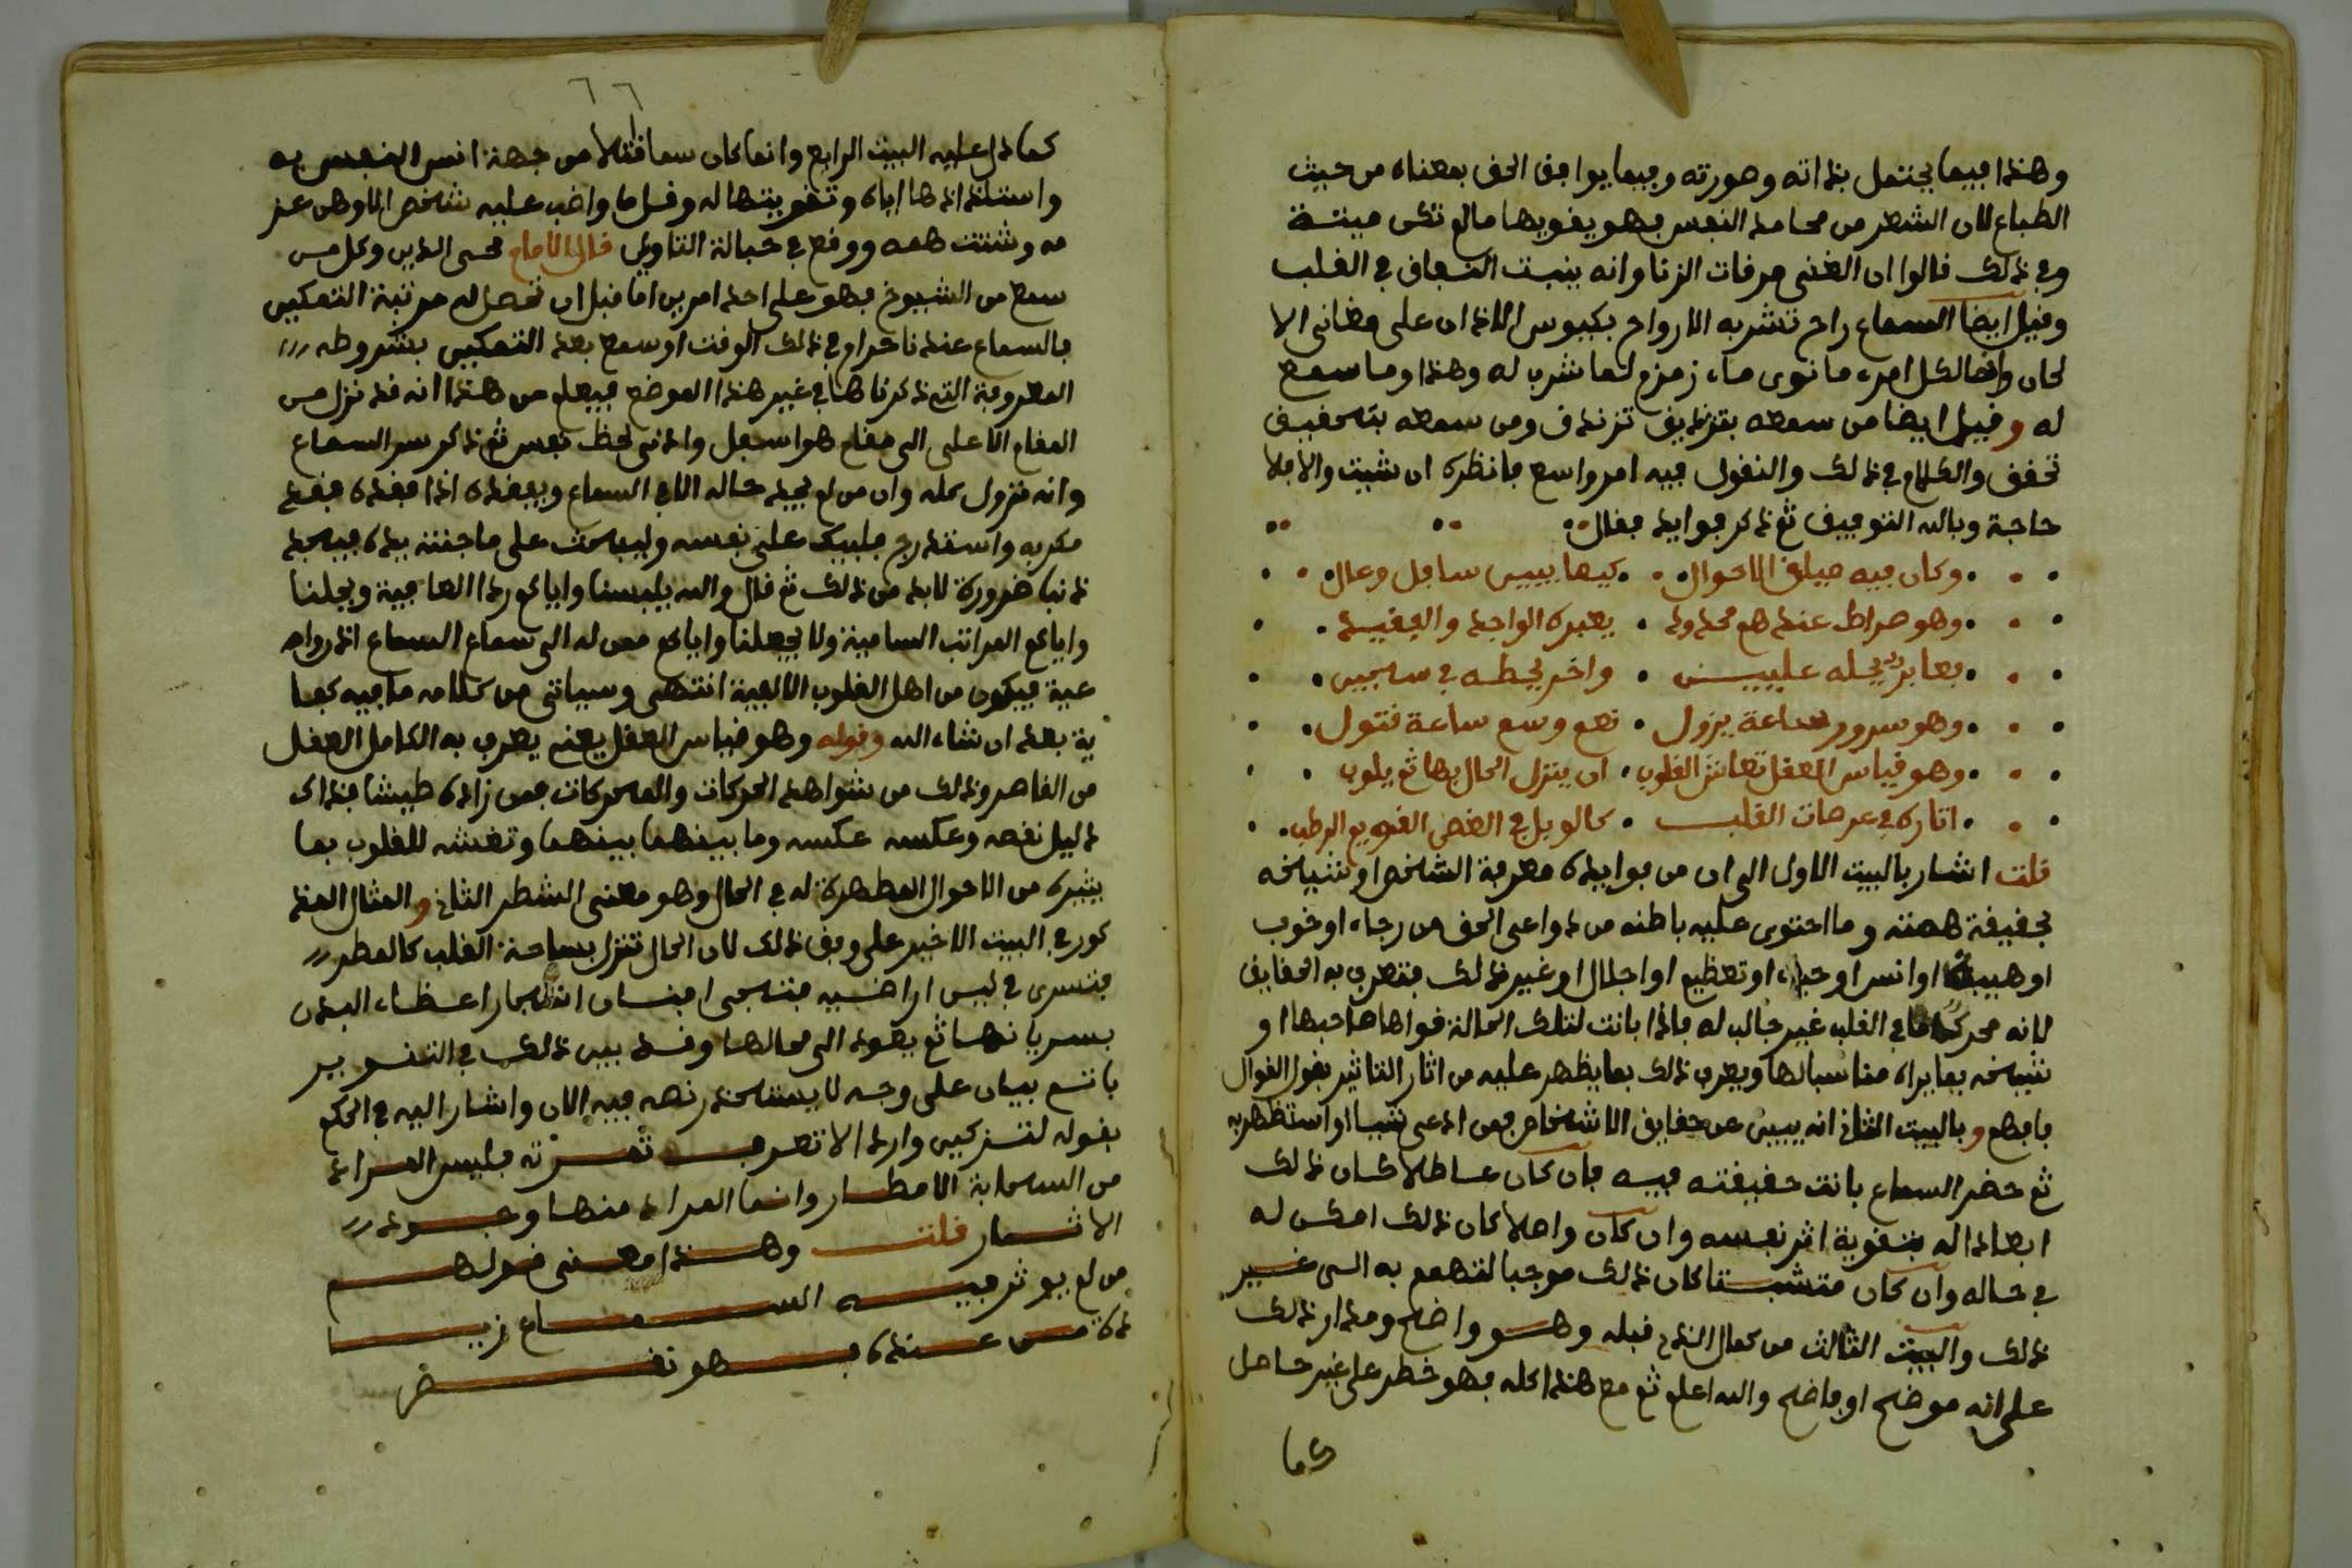 وهذا فيما يحتمل بذاته وصورته وفيما يوافق الحق بمعناه من حيث
الطباع لان الشعر من محامد النفس فهو يقويها مالم تكن ميتة
وفي ذلك قالوا ان الغنى مرقات الزنا وانه ينبت النفاق في القلب
وقيل ايضا السماع راح تشربه الارواح بكيوس الاذان على مغانى الا
لحان وانما لكل امرء ما نوى ماء زمزم لما شرب له وهذا وما سمع
له وقيل ايضا من سمعه بتزنديق تزندق ومن سمعه بتحقيق
تحقق والكلام في ذلك والنقول فيه امر واسع فانظره ان شيت والا فلا
حاجة وبالله التوفيق ثم ذكر فوايد فقال
وكان فيه ميلق الاحوال كيما يبين سافل وعال
وهو صراط عندهم محدود يعبره الواجد والفقيد
فعابر يحله عليين واخر يحطه في سجين
وهو سرور ساعة يزول نعم وسم ساعة قتول
وهو قياس العقل تعانش القلوب ان ينزل الحال بها ثم يلوب
اثاره في عرصات القلب كالوبل في الغصن القويم الرطب
قلت اشار بالبيت الاول الى ان من فوايده معرفة الشخص او شيخه
بحقيقة همته وما احتوى عليه باطنه من دواعى الحق من رجاء او خوف
او هيبة او انس او حياء او تعظيم او اجلال او غير ذلك فتعرف به الحقايق
لانه محرك لما في القلب غير جالب له فاذا بانت لتلك الحالة قواها صاحبها او
شيخه بما يراه مناسبا لها ويعرف ذلك بما يظهر عليه من اثار التاثير بقول القوال
فافهم وبالبيت الثاني انه يبين عن حقايق الاشخاص فمن ادعى شيا او استظهر به
ثم حضر السماع بانت حقيقته فيه فان كان عاطلا كان ذلك
ابعادا له بتقوية اثر نفسه وان كان واصلا كان ذلك امكن له
في حاله وان كان متشبتا كان ذلك موجبا لتهمم به الى غير
ذلك والبيت الثالث من كمال الذي قبله وهو واضح ومدار ذلك
على انه موضح او فاضح والله اعلم ثم مع هذا كله فهو خطر على غير حاصل
كما
٦٦
كما دل عليه البيت الرابع وانما كان سما قتلا من جهة انس النفس به
واستلذاذها اياه وتقويتها له وقل ما واضب عليه شخص الا وهن عز
مه وشتت همه ووقع في حبالة التاويل قال الامام محي الدين وكل من
سمع من الشيوخ فهو على احد امرين اما قبل ان تحصل له مرتبة التمكين
فالسماع عندنا حرام في ذلك الوقت او سمع بعد التمكين بشروطه
المعروفة التي ذكرناها في غير هذا الموضع فيعلم من هذا انه قد نزل من
المقام الاعلى الى مقام هو اسفل وادنى لحظ نفس ثم ذكر سر السماع
وانه نزول كله وان من لم يجد حاله الا في السماع ويفقده اذا فقده فقد
مكر به واستدرج فليبك على نفسه وليبحث على ما جنته يده فيجد
ذنبا ضرورة لابد من ذلك ثم قال والله يلبسنا واياكم رداء العافية ويحلنا
واياكم المراتب السامية ولا يجعلنا واياكم ممن له الى سماع السماع اذن واعيه
عية فيكون من اهل القلوب الالهية انتهى وسياتى من كلامه ما فيه كفا
ية بعد ان شاء الله وقوله وهو قياس العقل يعني يعرف به الكامل العقل
من القاصر وذلك من شواهد الحركات والمحركات فمن زاده طيشا فذاك
دليل نقصه وعكسه عكسه وما بينهما بينهما وتغشه للقلوب بما
يثيره من الاحوال المطهرة له في الحال وهو معنى الشطر الثاني والمثال المذ
كور في البيت الاخير على وفق ذلك لان الحال تنزل بساحة القلب كالمطر
فتسرى في يبس اراضيه فتحيى افنان اشجار اعضاء البدن
بسريانها ثم يعود الى محالها وقد بين ذلك في التنوير
باتم بيان على وجه لا يستحضر نصه فيه الان واشار اليه في الحكم
بقوله لا تزكين وارد الا تعرف ثمرته فليس المراد
من السحابة الامطار وانما المراد منها وجود
الاثمار قلت وهذا معنى قولهم
من لم يوثر فيه السماع زيا
دة من عنده فهو نقص